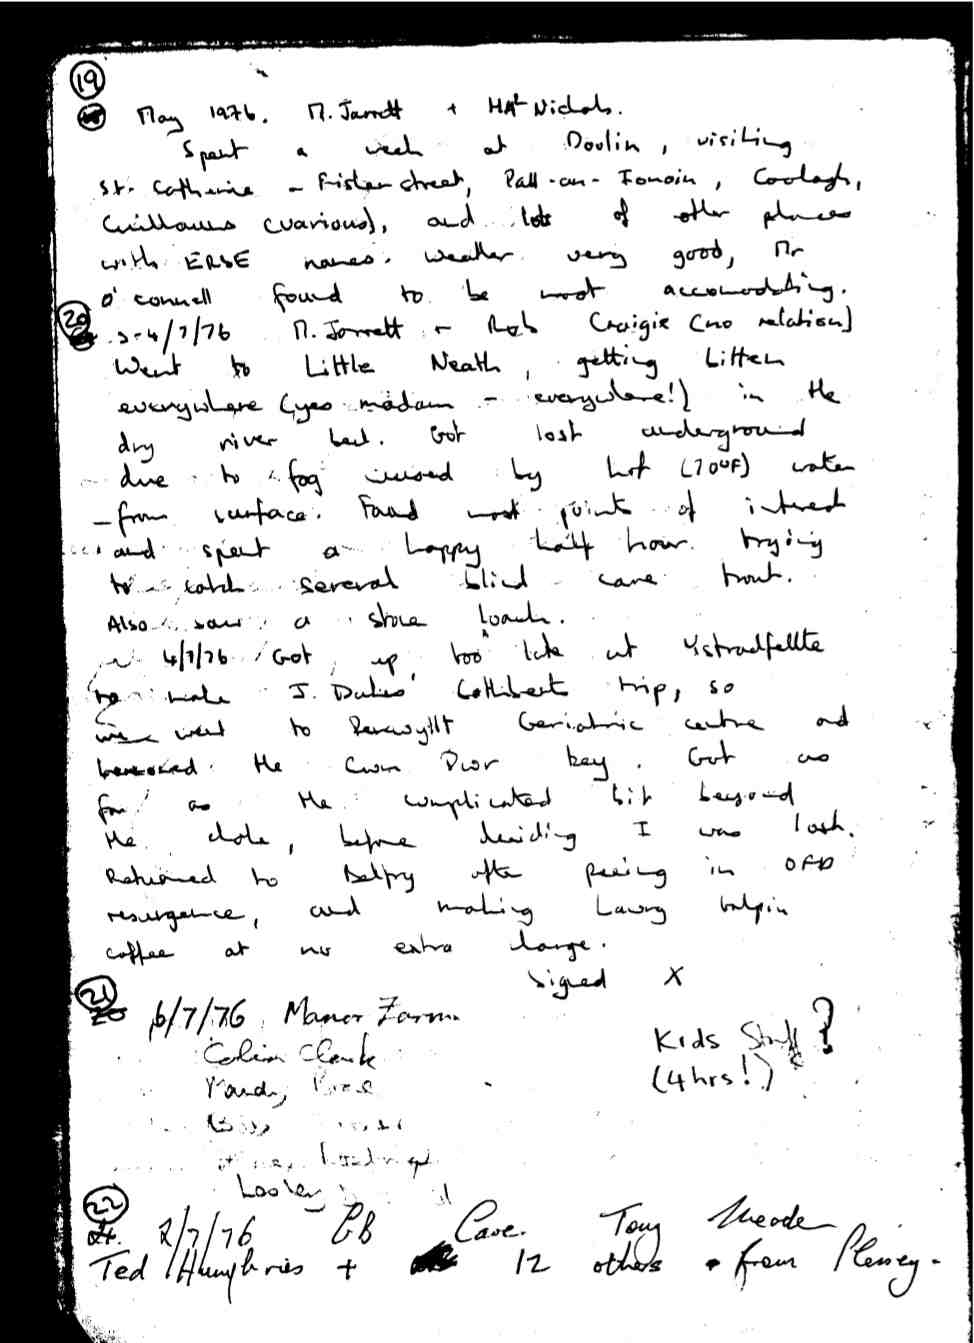 19
May 1976. M. Jarrett + Nichols.
Spent a week at Doolin, visiting
St. Catherine - Fisterstreet, Poll-an-Ionain, Coolagh,
Cullauns (various), and lots of other places
with ERSE names. Weather very good, Mr
O'Connell found to be most accomodating.
20
3-4/7/76 M. Jarrett + Rob Craigie (no relation)
Went to Little Neath, getting bitten
everywhere (yes madam - everywhere!) in the
dry river bed. Got lost underground
due to fog caused by hot (70°F) water
from surface. Found most points of interest
and spent a happy half hour trying
to catch several blind cave trout.
Also saw a stone loach.
4/7/76 Got up too late at Ystradfellte
to make J. Dukes' Cuthberts trip, so
we went to Penwyllt Geriatric centre and
borrowed the Cwm Dwr key. Got as
far as the complicated bit beyond
the choke, before deciding I was lost.
Returned to Belfry after peeing in OFD
resurgence, and making
coffee at no extra charge.
Signed X
21
6/7/76 Manor Farm.
Colin Clark
Kids Stuff?
(4 hrs!)
22
2/7/76 GB Cave. Tony Meaden
Ted Humphries + 12 others from Plessey.